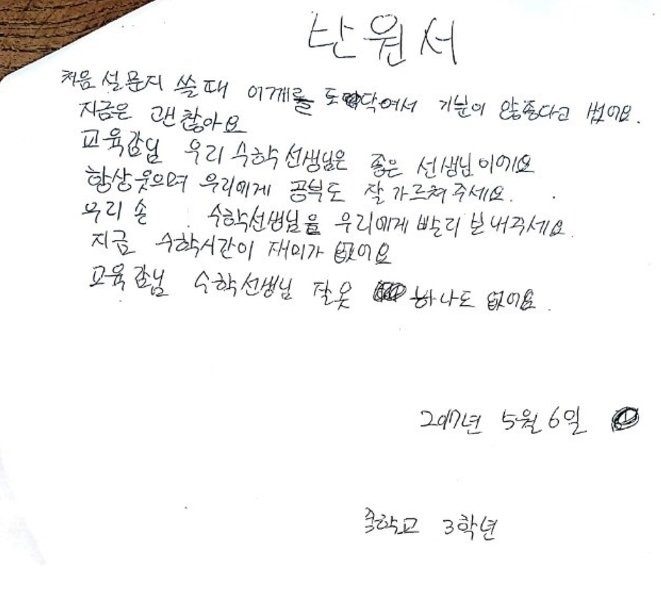 탄원서
처음 설문지 쓸때 어깨를 토닥여서 기분이 않좋다고 썼어요.
지금은 괜찮아요
교육감님 우리 수학선생님은 좋은 선생님이에요
항상웃으며 우리에게 공부도 잘 가르쳐주세요.
우리 수학선생님을 우리에게 빨리 보내주세요.
지금 수학시간이 재미가 없어요
교육감님 수학선생님 잘못 하나도 없어요.
2017년 5월 6일
중학교 3학년